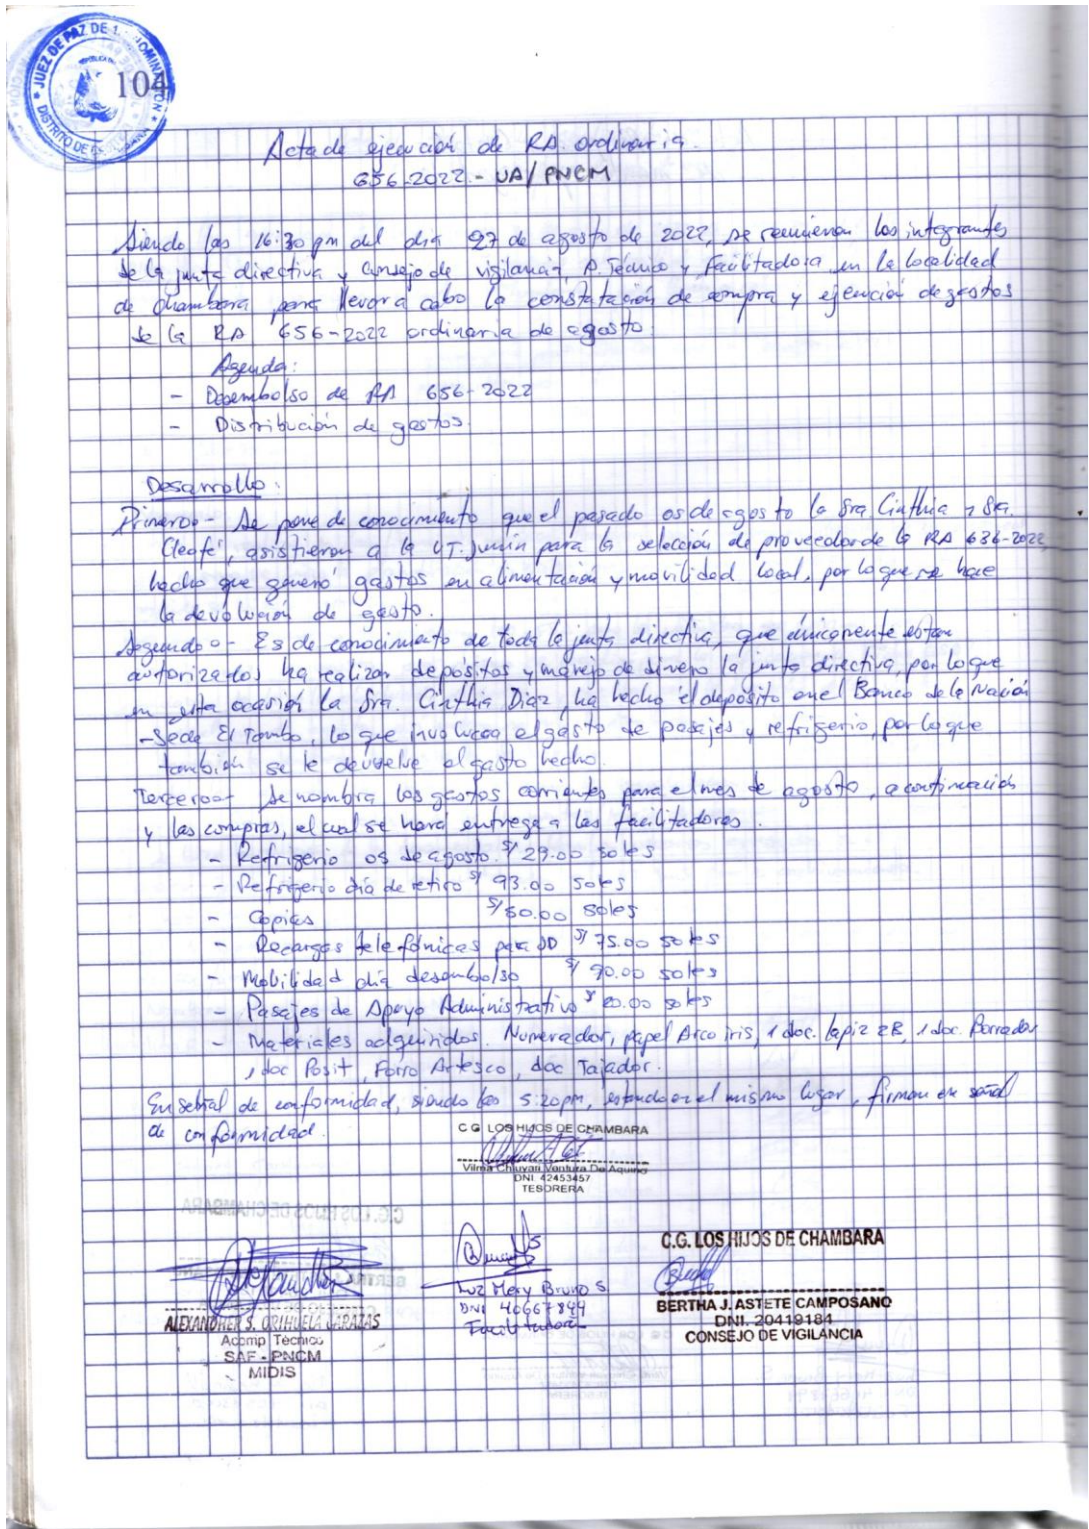 JUEZ DE PAZ DE 1. NOMINACION
DISTRITO DE
104
Acta de ejecución de RA. ordinaria.
656-2022.- UA/PNCM
Siendo las 16:30 pm del dia 27 de agosto de 2022, se reunieron los integrantes
de la junta directiva y consejo de vigilancia, A. Técnico y Facilitadora en la localidad
de chambara para llevar a cabo la constatación de compra y ejecución de gastos
de la RA 656-2022 ordinaria de agosto.
Agenda:
- Desembolso de RA 656-2022
- Distribución de gastos.
Desarrollo:
Primero.- Se pone de conocimiento que el pasado 05 de agosto la Sra Cinthia y Sra.
Cleofé, asistieron a la UT. Junín para la selección de proveedor de la RA 636-2022,
hecho que generó gastos en alimentación y movilidad local, por lo que se hace
la devolución de gasto.
Segundo.- Es de conocimiento de toda la junta directiva, que únicamente estan
autorizados ha realizar depósitos y manejo de dinero la junta directiva, por lo que
en esta ocasión la Sra. Cinthia Díaz, ha hecho el depósito en el Banco de la Nación
-Sede El Tambo, lo que involucra el gasto de pasajes y refrigerio, por lo que
también se le devuelve el gasto hecho.
Tercero.- Se nombra los gastos corrientes para el mes de agosto, a continuación
y las compras, el cual se hará entrega a las facilitadoras.
- Refrigerio 05 de agosto. S/ 29.00 soles
- Refrigerio día de retiro S/ 93.00 soles
- Copias S/ 50.00 soles
- Recargas telefónicas para JD S/ 75.00 soles
- Mobilidad día desembolso S/ 90.00 soles
- Pasajes de Apoyo Administrativo S/ 20.00 soles
- Materiales adquiridos. Numerador, papel Arco iris, 1 doc. lapiz 2B, 1 doc. Borrador
1 doc Posit, Forro Artesco, doc Tajador.
En señal de conformidad, siendo las 5:20pm, estando en el mismo lugar, firman en señal
de conformidad.
C G LOS HIJOS DE CHAMBARA
Vilma Chiuyari Ventura De Aquino
DNI. 42453457
TESORERA
ALEXANDHER S. ORIHUELA CARAZAS
Acomp Técnico
SAF - PNCM
MIDIS
Luz Mery Bruno S
DNI 40667844
Facilitadora
C.G. LOS HIJOS DE CHAMBARA
BERTHA J. ASTETE CAMPOSANO
DNI. 20419184
CONSEJO DE VIGILANCIA